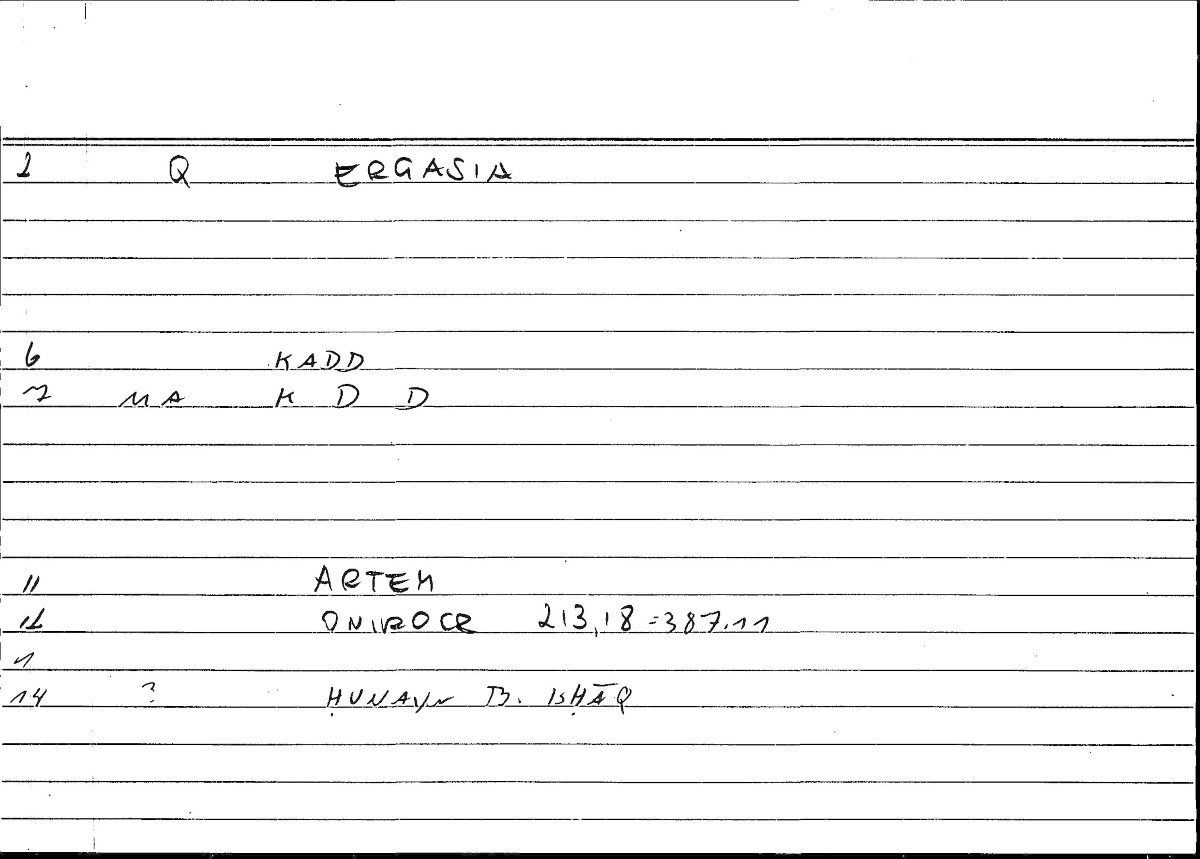 1 Q ERGASIA
6 KADD
7 MA K D D
11 ARTEM
12 ONIROCR 213,18=387.11
1
14 ? ḤUNAYN B. ISḤĀQ